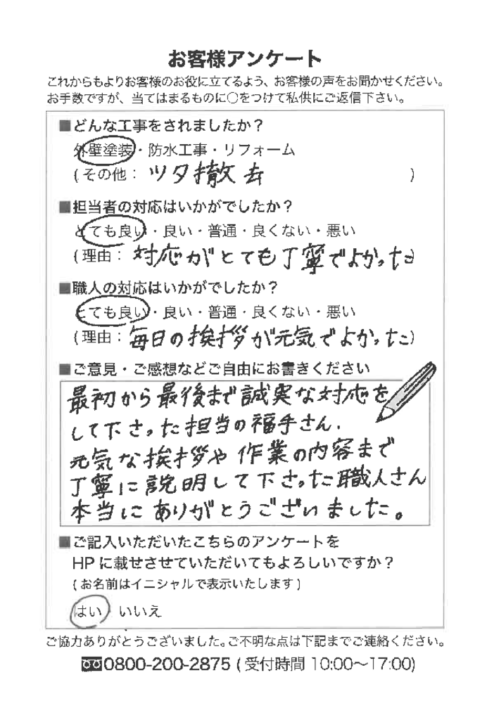 お客様アンケート
これからもよりお客様のお役に立てるよう、お客様の声をお聞かせください。
お手数ですが、当てはまるものに○をつけて私供にご返信下さい。
■どんな工事をされましたか？
外壁塗装・防水工事・リフォーム
(その他：ツタ撤去)
■担当者の対応はいかがでしたか？
とても良い・良い・普通・良くない・悪い
(理由：対応がとても丁寧でよかった)
■職人の対応はいかがでしたか？
とても良い・良い・普通・良くない・悪い
(理由：毎日の挨拶が元気でよかった)
■ご意見・ご感想などご自由にお書きください
最初から最後まで誠実な対応を
して下さった担当の福手さん、
元気な挨拶や作業の内容まで
丁寧に説明して下さった職人さん
本当にありがとうございました。
■ご記入いただいたこちらのアンケートを
HPに載せさせていただいてもよろしいですか？
(お名前はイニシャルで表示いたします)
はい・いいえ
ご協力ありがとうございました。ご不明な点は下記までご連絡ください。
0800-200-2875 (受付時間 10:00～17:00)